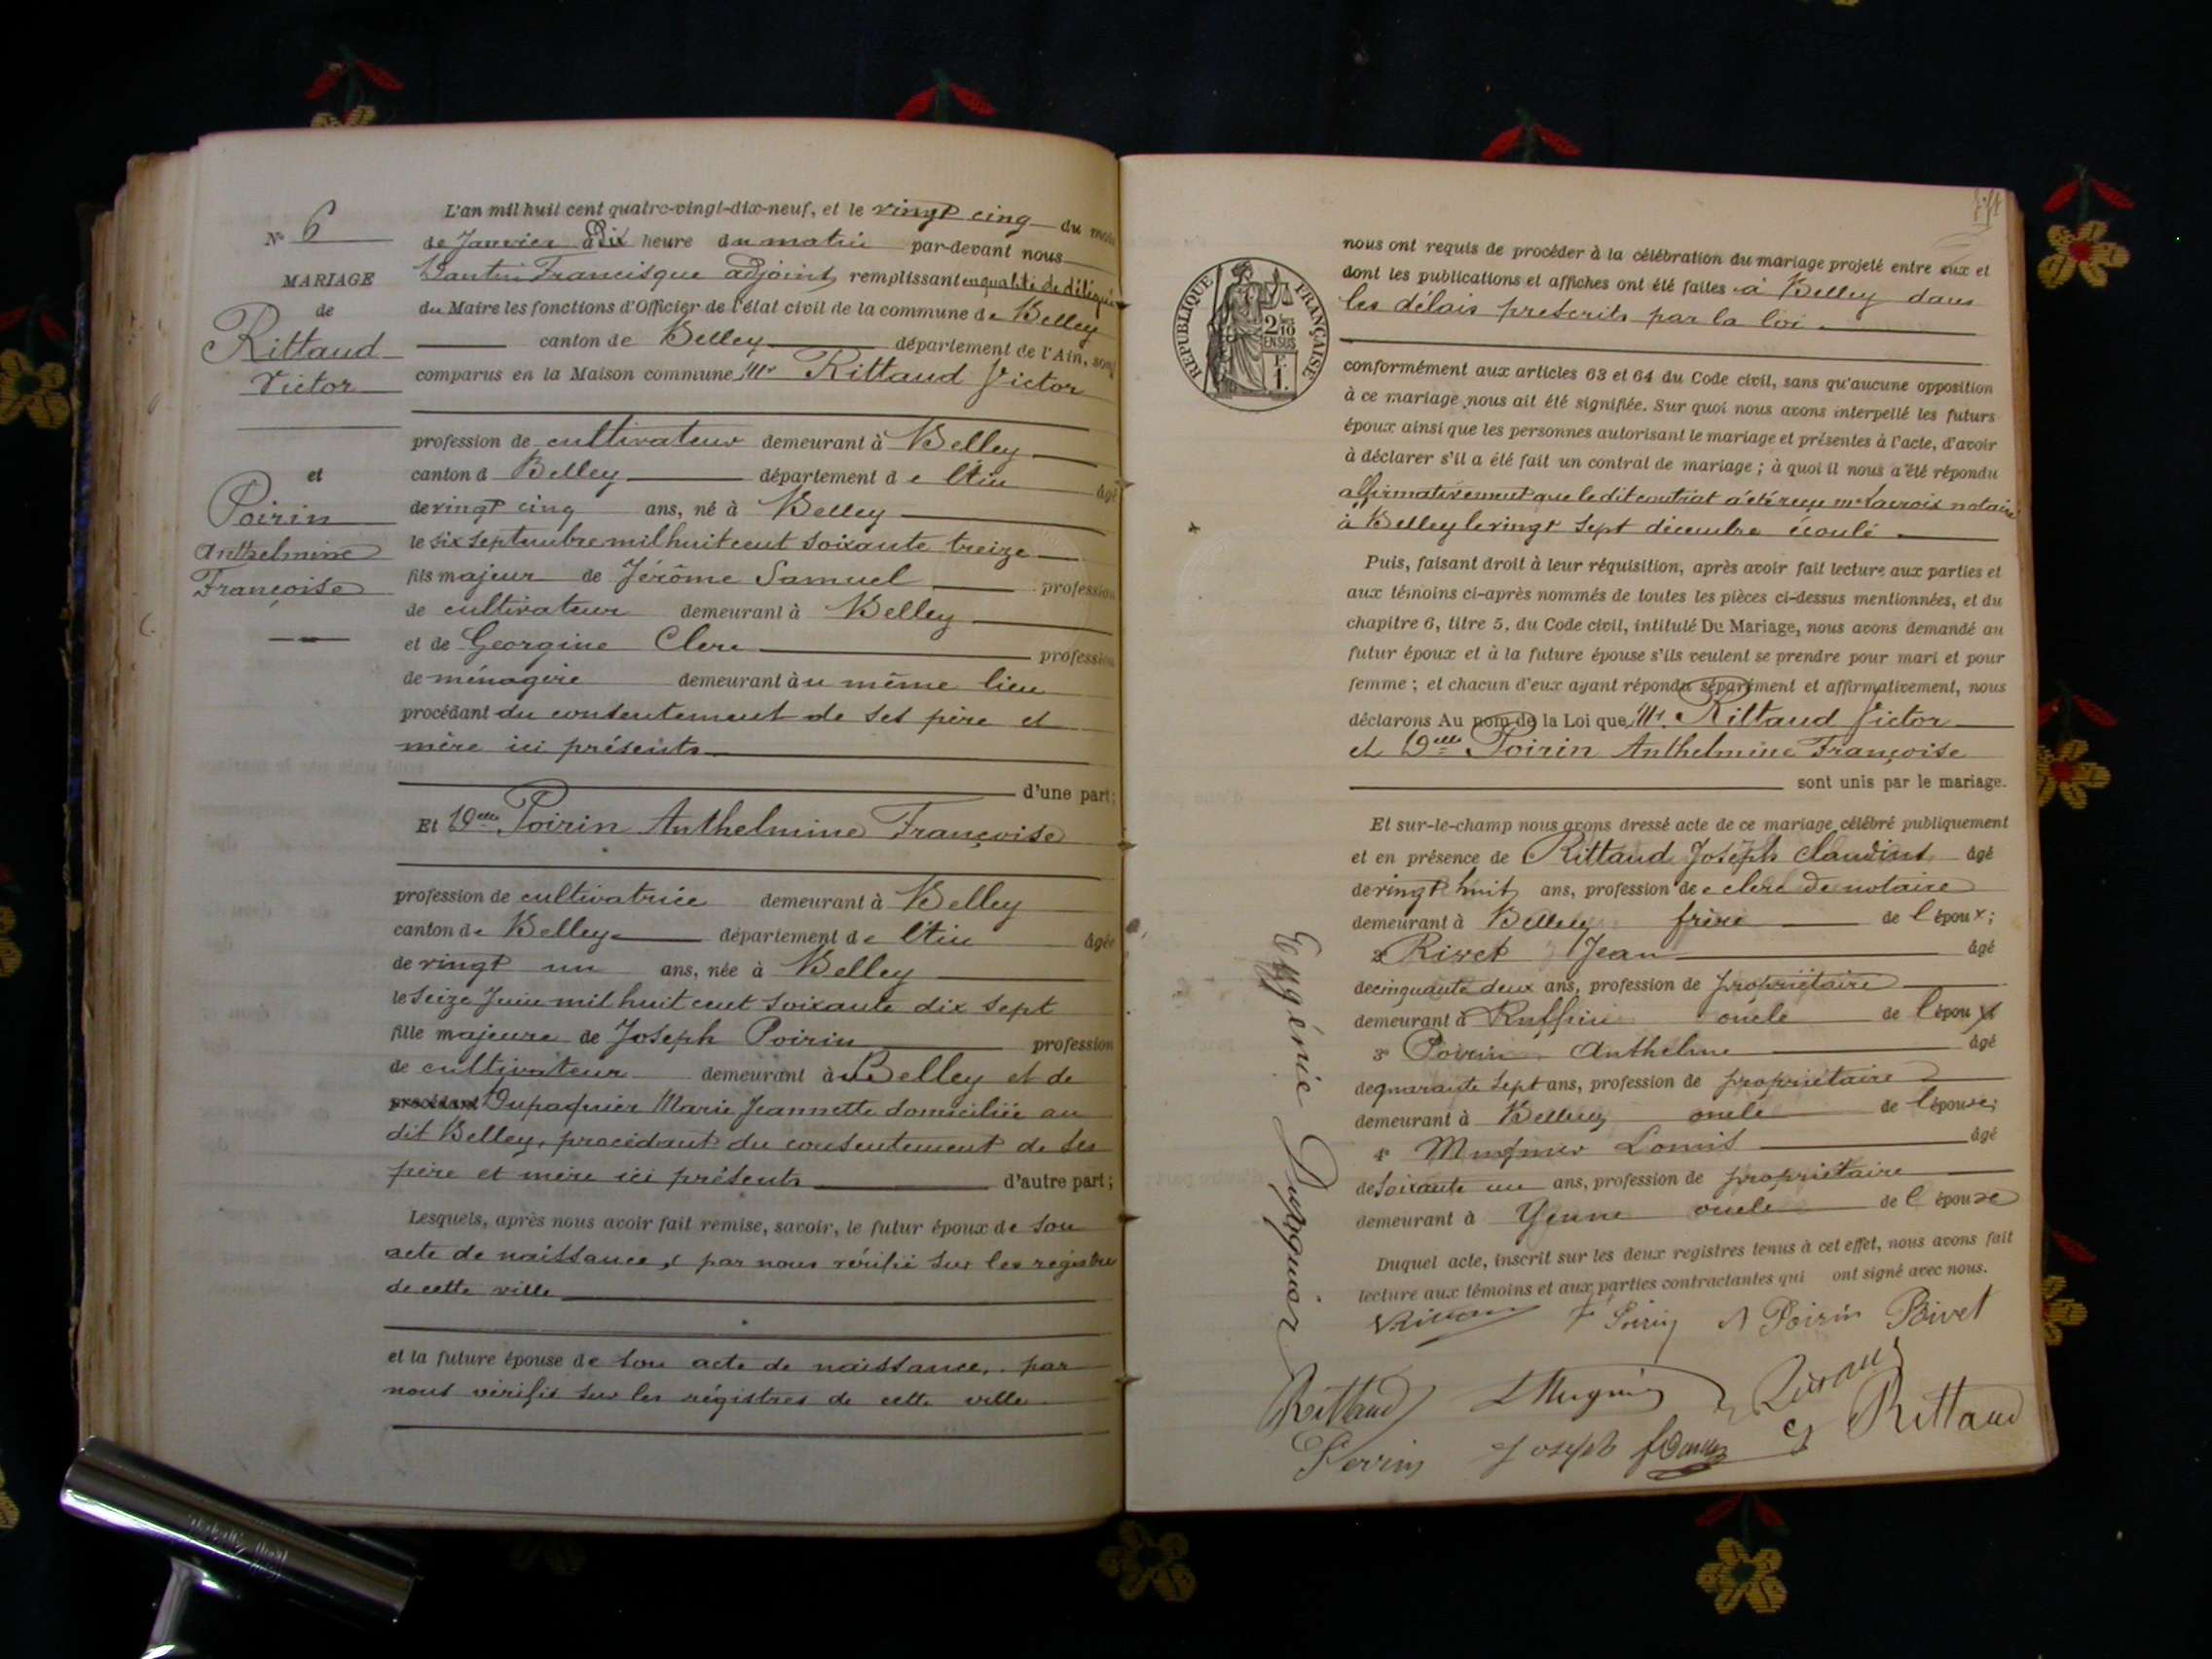 N° 6
MARIAGE
de
Rittaud
Victor
et
Poirin
Anthelmine
Françoise
L'an mil huit cent quatre-vingt-dix-neuf, et le vingt cinq du mois
de Janvier à Dix heure du matin par-devant nous
Francisque adjoint, remplissant en qualité de délégué
du Maire les fonctions d'Officier de l'état civil de la commune de Belley
canton de Belley département de l'Ain, sont
comparus en la Maison commune, Mr Rittaud Victor
profession de cultivateur demeurant à Belley
canton d Belley département d e l'Ain âgé
de vingt cinq ans, né à Belley
le six septembre mil huit cent soixante treize
fils majeur de Jérôme Samuel profession
de cultivateur demeurant à Belley
et de Georgine Clerc profession
de ménagère demeurant à u même lieu
procédant du consentement de ses père et
mère ici présents
d'une part;
Et Delle Poirin Anthelmine Françoise
profession de cultivatrice demeurant à Belley
canton de Belley département de l'Ain âgée
de vingt un ans, née à Belley
le seize Juin mil huit cent soixante dix sept
fille majeure de Joseph Poirin profession
de cultivateur demeurant à Belley et de
procédant Dupasquier Marie Jeannette domiciliée au
dit Belley, procédant du consentement de ses
père et mère ici présents d'autre part;
Lesquels, après nous avoir fait remise, savoir, le futur époux de son
acte de naissance, par nous vérifié sur les régistres
de cette ville
et la future épouse de son acte de naissance, par
nous vérifié sur les régistres de cette ville
RÉPUBLIQUE FRANÇAISE
2/10
EN SUS
F.
1.
nous ont requis de procéder à la célébration du mariage projeté entre eux et
dont les publications et affiches ont été faites à Belley dans
les délais prescrits par la loi.
conformément aux articles 63 et 64 du Code civil, sans qu'aucune opposition
à ce mariage nous ait été signifiée. Sur quoi nous avons interpellé les futurs
époux ainsi que les personnes autorisant le mariage et présentes à l'acte, d'avoir
à déclarer s'il a été fait un contrat de mariage; à quoi il nous a été répondu
affirmativement que le dit contrat a été reçu me Lacroix notaire
à Belley le vingt sept décembre écoulé
Puis, faisant droit à leur réquisition, après avoir fait lecture aux parties et
aux témoins ci-après nommés de toutes les pièces ci-dessus mentionnées, et du
chapitre 6, titre 5, du Code civil, intitulé Du Mariage, nous avons demandé au
futur époux et à la future épouse s'ils veulent se prendre pour mari et pour
femme; et chacun d'eux ayant répondu séparément et affirmativement, nous
déclarons Au nom de la Loi que, Mr. Rittaud Victor
et Delle Poirin Anthelmine Françoise
sont unis par le mariage.
Et sur-le-champ nous avons dressé acte de ce mariage célébré publiquement
et en présence de Rittaud Joseph Claudius âgé
de vingt huit ans, profession de clerc de notaire
demeurant à Belley frère de l'époux;
2° Rivet Jean âgé
de cinquante deux ans, profession de propriétaire
demeurant à Ruffieu oncle de l'époux
3° Poirin Anthelme âgé
de quarante sept ans, profession de propriétaire
demeurant à Belley oncle de l'épouse;
4° Mugnier Louis âgé
de soixante un ans, profession de propriétaire
demeurant à Yenne oncle de l'épouse
Duquel acte, inscrit sur les deux registres tenus à cet effet, nous avons fait
lecture aux témoins et aux parties contractantes qui ont signé avec nous.
Poirin
Rivet
Rittaud
L Mugnier
Rittaud
Joseph
Eugénie Dupasquier